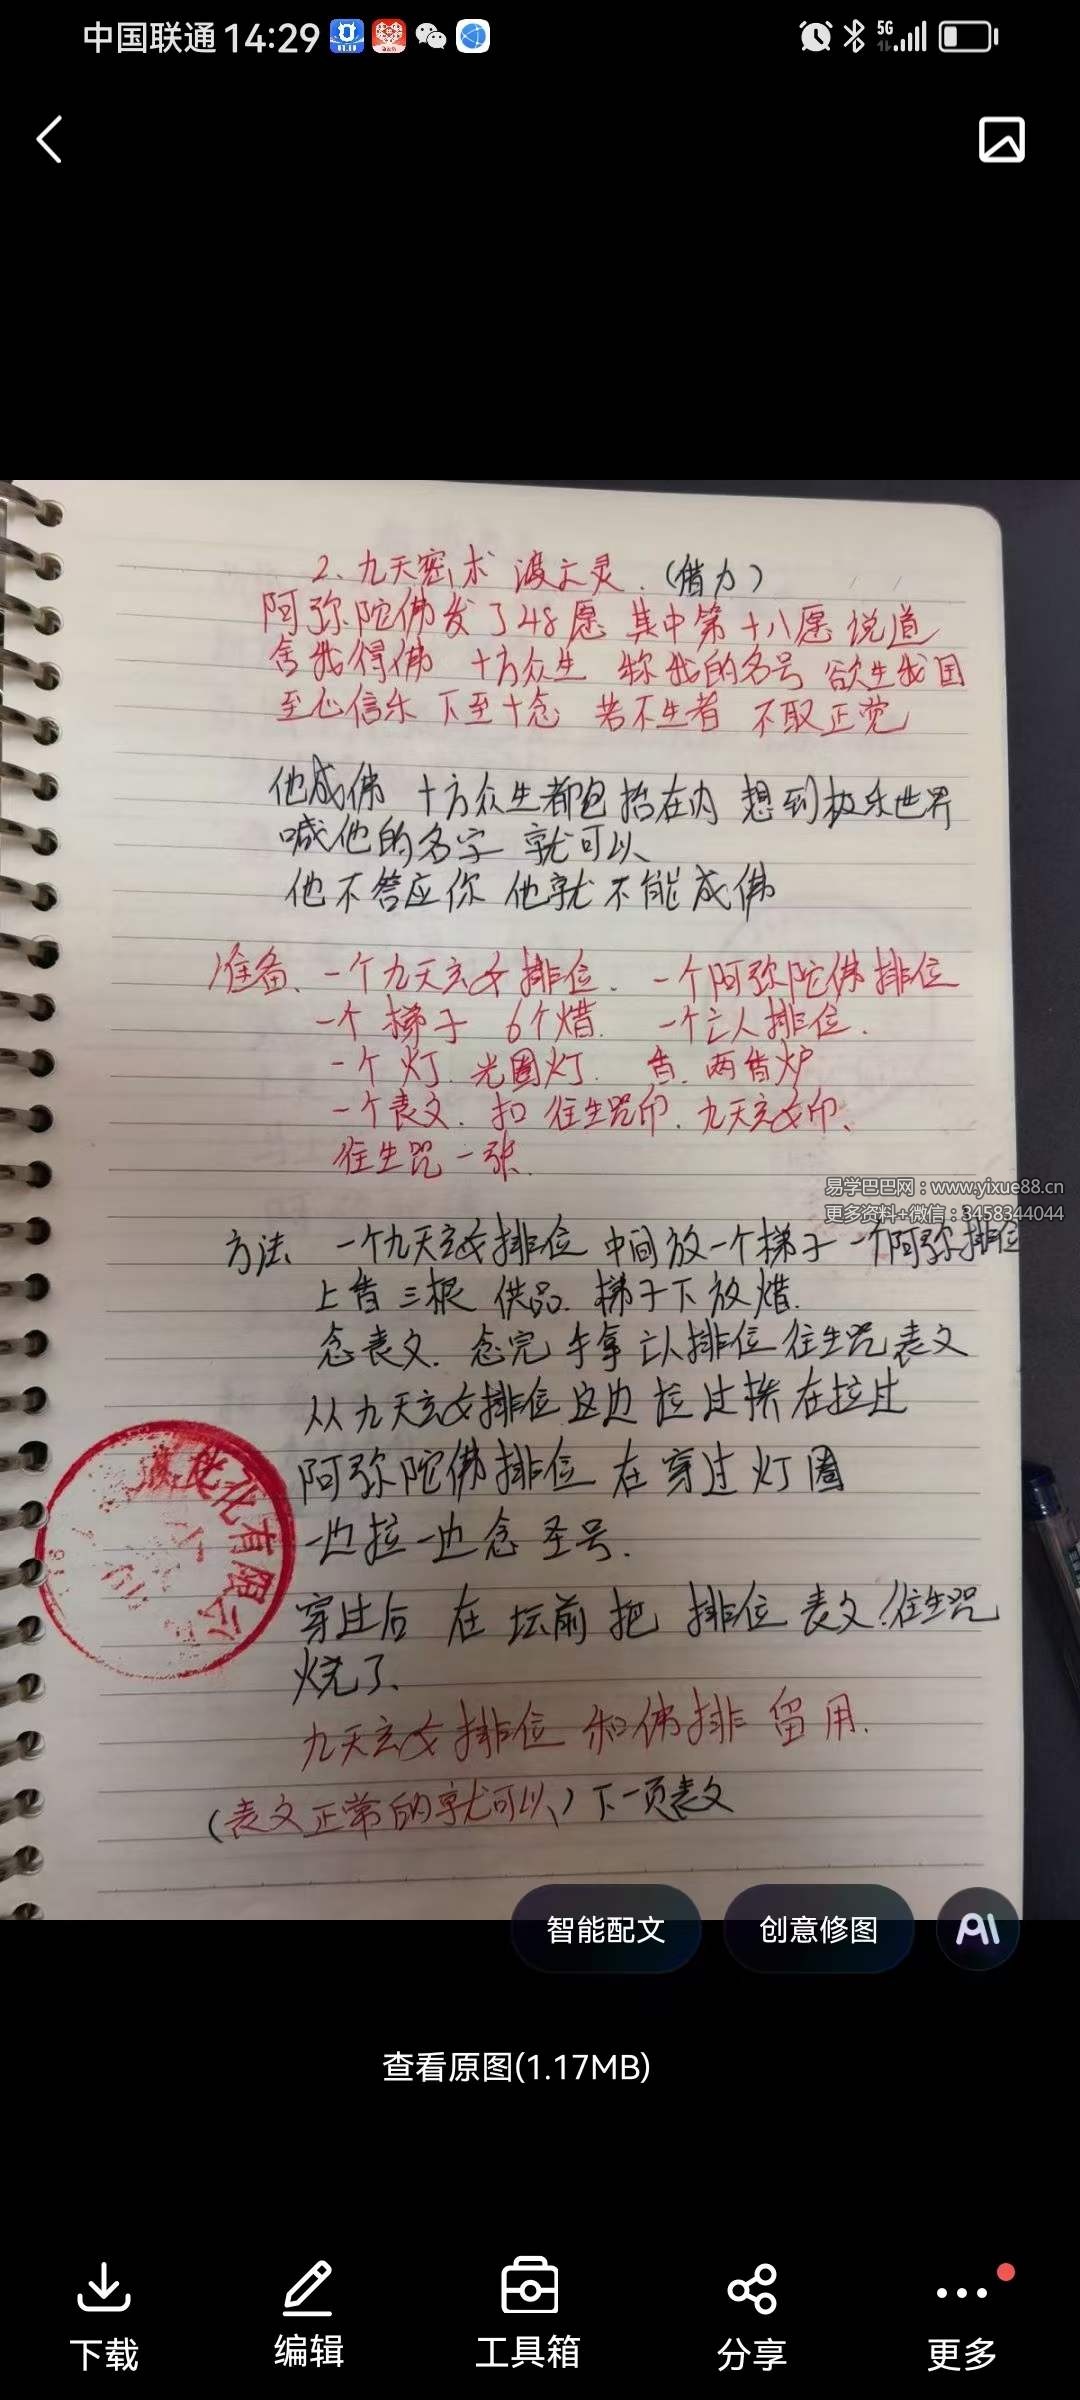 中国联通 14:29
5G
2、九天密术 渡亡灵.（借力）
阿弥陀佛发了48愿 其中第十八愿说道
舍我得佛 十方众生 称我的名号 欲生我国
至心信乐 下至十念 若不生者 不取正觉
他成佛 十方众生都包括在内 想到极乐世界
喊他的名字 就可以
他不答应你 他就不能成佛
准备、一个九天玄女排位. 一个阿弥陀佛排位
一个 梯子 6个烛. 一个亡人排位.
一个灯. 光圈灯. 香. 两香炉
一个表文. 扣 往生咒印. 九天玄女印、
往生咒一张.
易学巴巴网：www.yixue88.cn
更多资料+微信：3458344044
方法、一个九天玄女排位 中间放一个梯子 一个阿弥排位
上香三根 供品. 梯子下放烛.
念表文. 念完手拿亡人排位往生咒表文
从九天玄女排位这边拉过 在拉过
阿弥陀佛排位 在穿过灯圈
一边拉一边念圣号.
穿过后 在坛前把 排位表文往生咒
烧了.
九天玄女排位 和佛排 留用.
（表文正常的就可以）下一页表文
文化有限公
智能配文
创意修图
AI
查看原图(1.17MB)
下载
编辑
工具箱
分享
更多